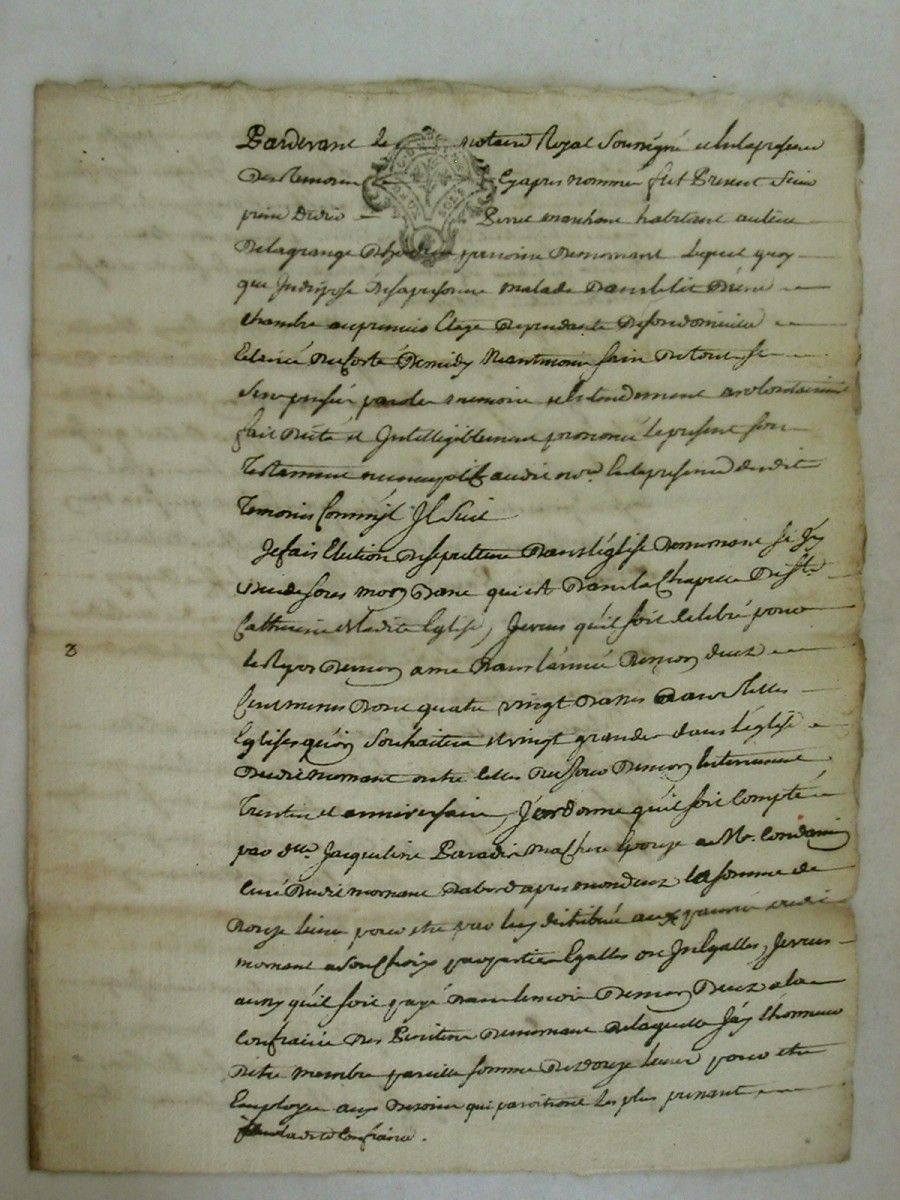 Pardevant le notaire Royal Soussigné et en la presence
Des temoins Cy apres nommés fut Present Sieur
pierre marchant habitant au lieu
De lagrange parroisse De mornant Lequel quoy
que Indisposé De sa personne malade Dans le lit D'une
chambre au premier Etage Dependante De son domicille
Eclairée Du Costé De midy Neantmoins sain De tous se
sens pensée parole memoire et Entendement a volontairement
fait Dicté et Intelligiblement prononcé le present son
Testament nuncupatif audit no.re En la presence desdits
Temoins Comm'il Il Suit
Je fais Election De sepulture Dans l'église De mornant si j'y
Decede sous mon Banc qui est Dans la Chapelle De S.te
Catherine de ladite Eglise, Je veux qu'il soit celebré pour
le Repos De mon ame Dans l'année De mon decez
Cent messes Dont quatre vingt Basses Dans telles
Eglises qu'on Souhaitera et vingt grandes dans l'église
Dudit mornant outre celles Du jour De mon Enterrement
Trentin et anniversaire, J'ordonne qu'il soit Compté
par d.lle Jacqueline ma Chere Epouse a M.r Condamin
Curé Dudit mornant D'abord apres mon decez la somme de
Douze livres pour etre par luy distribuée aux pauvres dudit
mornant a son Choix par parties Egalles ou Inegalles, Je veux
aussy qu'il soit payé Dans le mois De mon Decez a la
Confrairie Des Penitens De mornant De laquelle J'ay l'honneur
D'etre membre pareille somme De douze livres pour etre
Employée aux Besoins qui paroitront les plus pressant
ladite Confrairie.